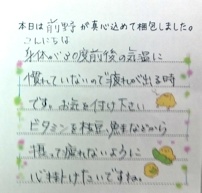 本日は前野が真心込めて梱包しました。
こんにちは
身体が30度前後の気温に
慣れていないので疲れが出る時
です。お気を付け下さい
ビタミンを枝豆、魚などから
摂って疲れないように
心掛けたいですね。